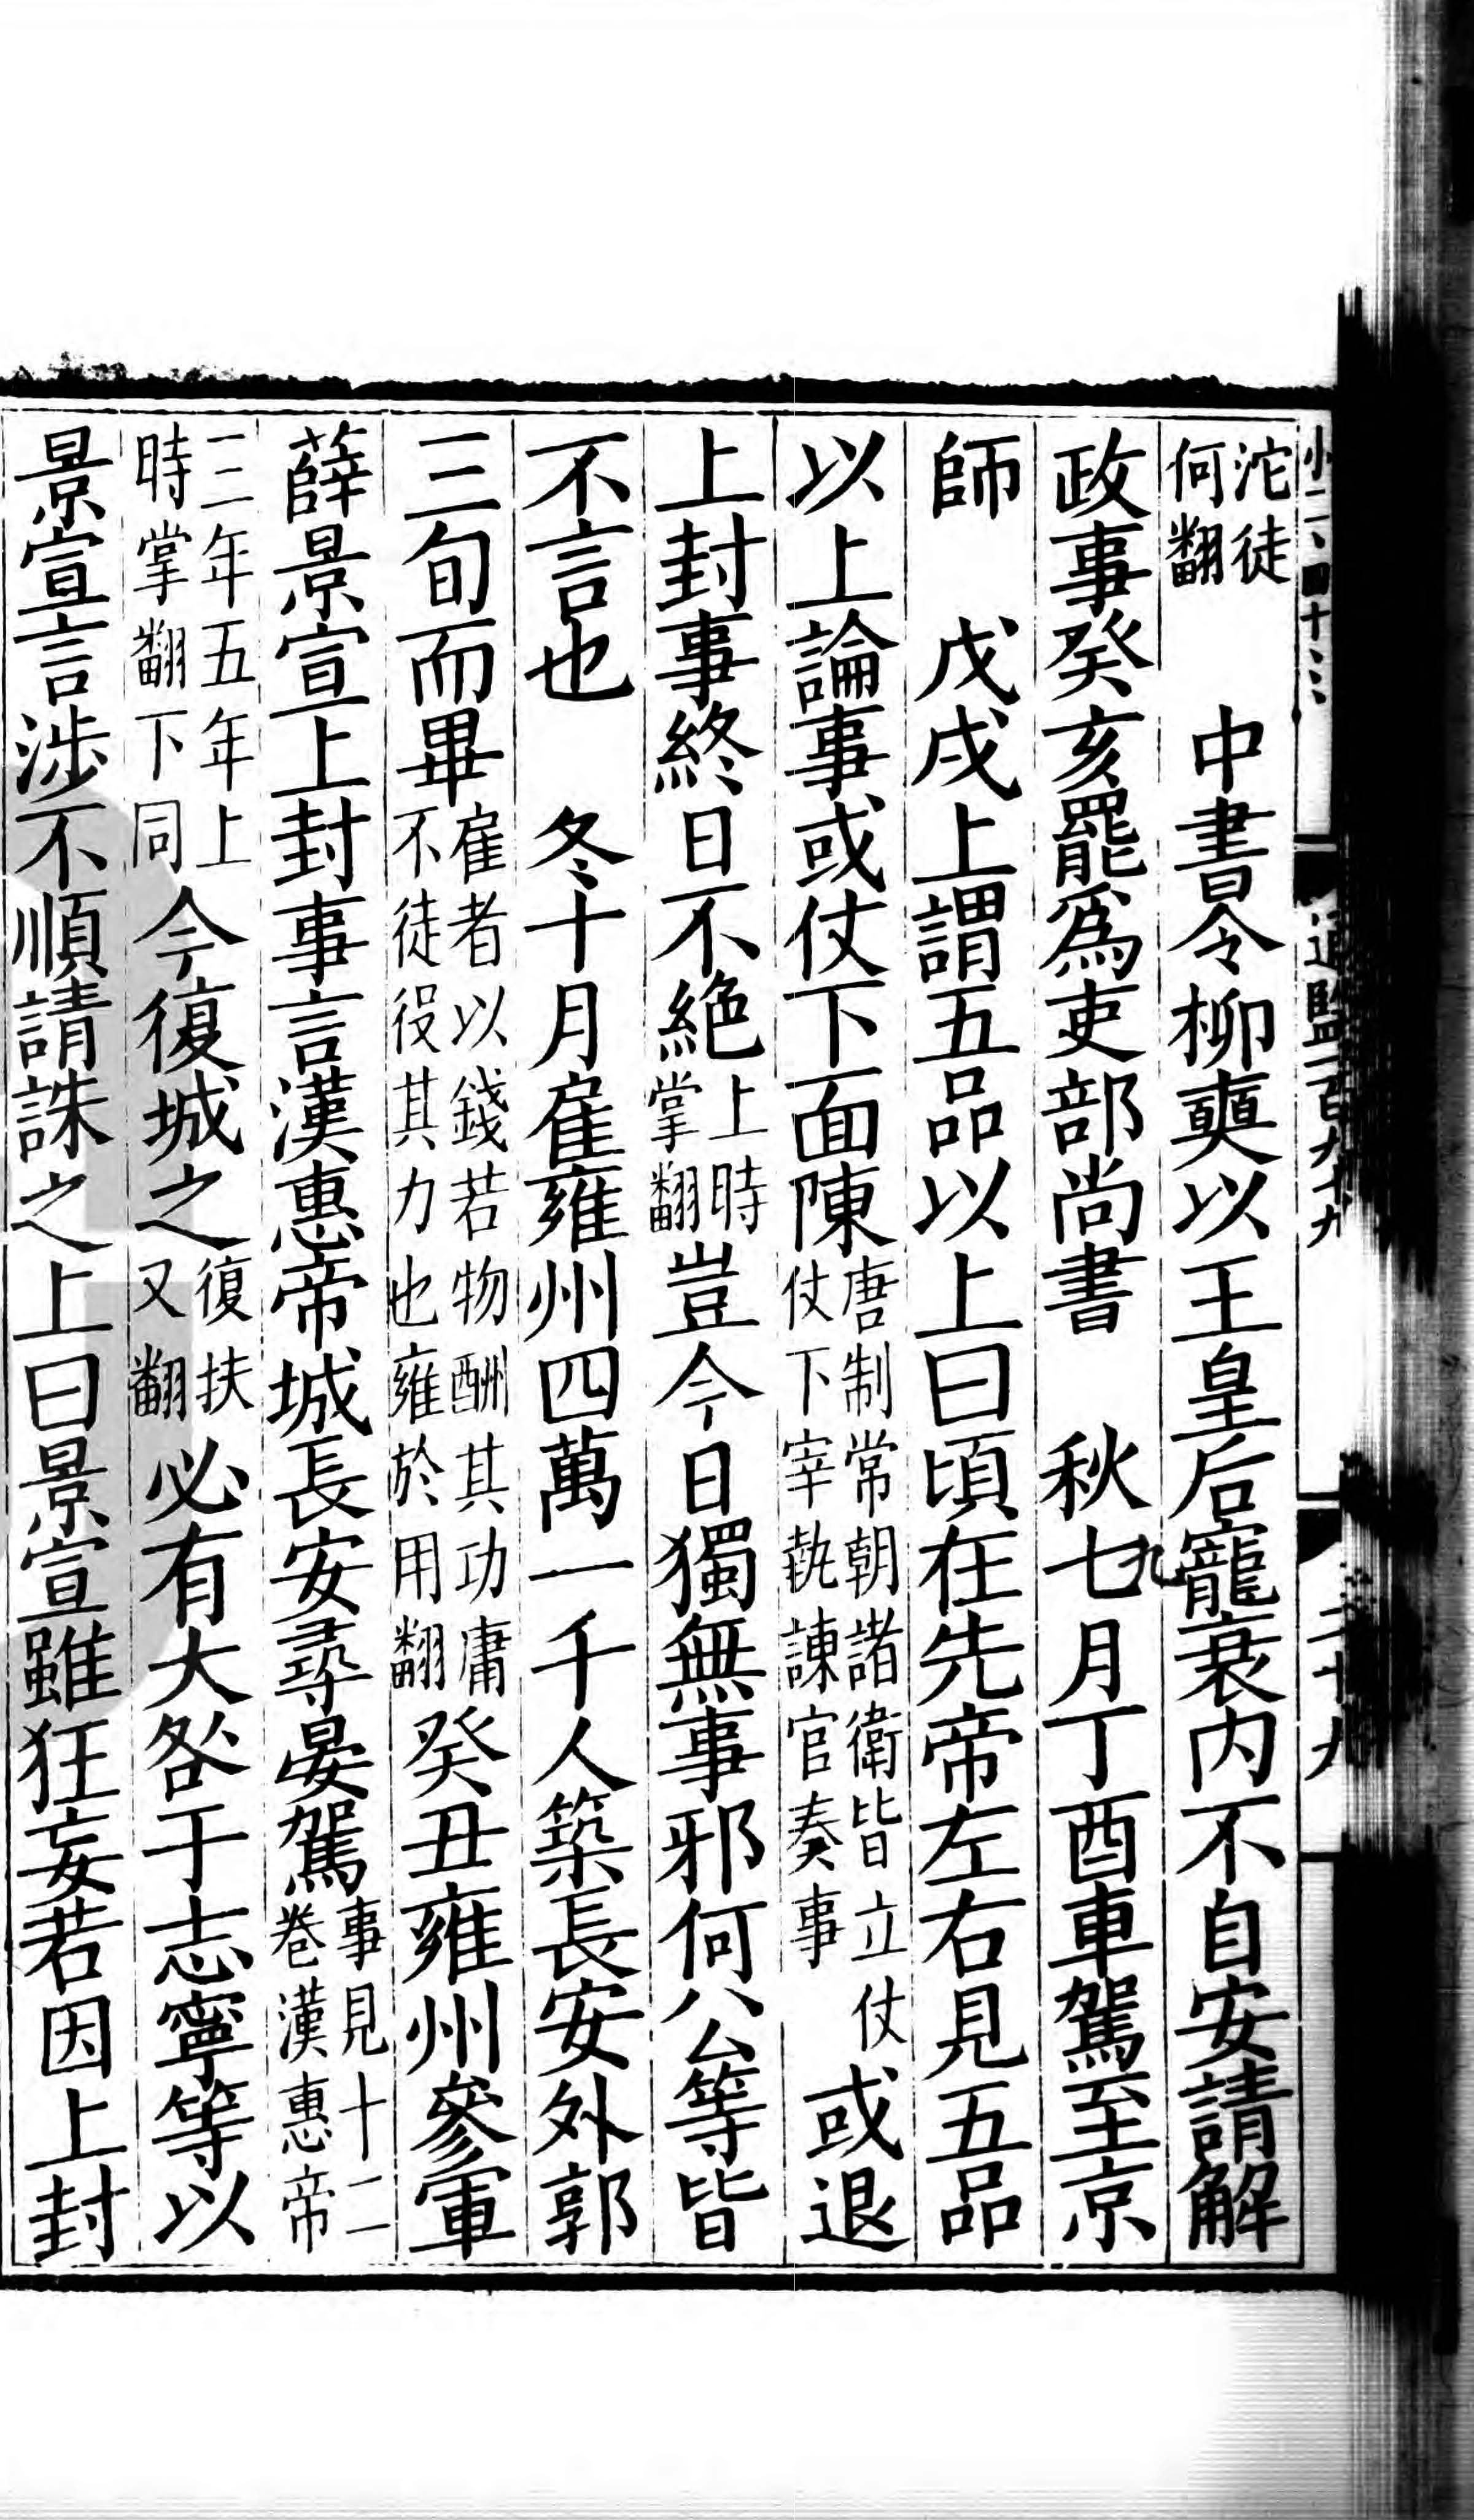 沱徒何翻　中書令柳奭以王皇后寵衰内不自安請解
政事癸亥罷爲吏部尚書　秋七九月丁酉車駕至京
師　戊戌上謂五品以上曰頃在先帝左右見五品
以上論事或仗下面陳唐制常朝諸衛皆立仗仗下宰執諫官奏事或退
上封事終日不絶上時掌翻豈今日獨無事邪何公等皆
不言也　冬十月雇雍州四萬一千人築長安外郭
三旬而畢雇者以錢若物酬其功庸不徒役其力也雍於用翻癸丑雍州參軍
薛景宣上封事言漢惠帝城長安尋晏駕事見十二卷漢惠帝
三年五年上時掌翻下同今復城之復扶又翻必有大咎于志寧等以
景宣言涉不順請誅之上曰景宣雖狂妄若因上封